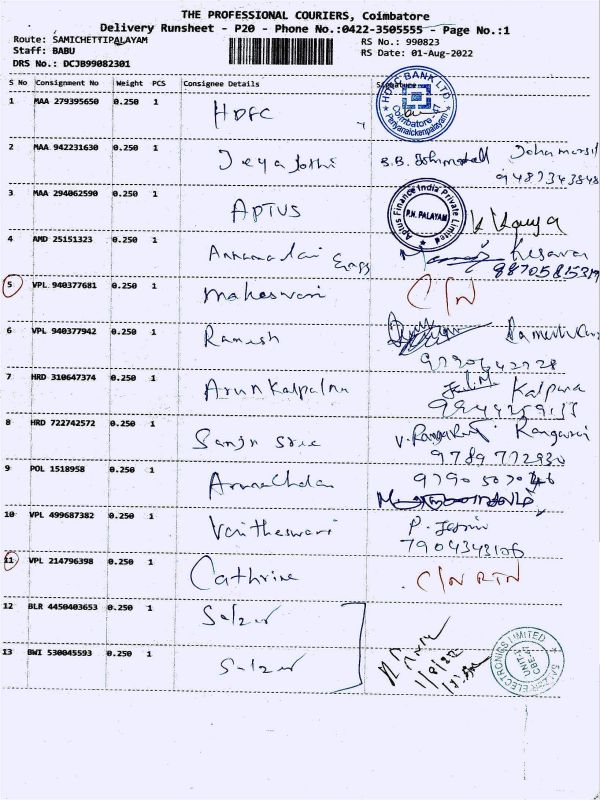 THE PROFESSIONAL COURIERS, Coimbatore
Delivery Runsheet - P20 - Phone No.:0422-3505555 - Page No.:1
Route: SAMICHETTIPALAYAM
RS No.: 990823
Staff: BABU
RS Date: 01-Aug-2022
DRS No.: DCJB99082301
S No Consignment No Weight PCS Consignee Details Signature
1 MAA 279395650 0.250 1 HDFC
HDFC BANK LTD
Coimbatore - 47
Periyanaickenpalayam
2 MAA 942231630 0.250 1 Jeya Jothi
3 MAA 294062590 0.250 1 APTUS
Aptus Finance India Private Limited
P.N. PALAYAM
4 AMD 25151323 0.250 1 Annamalai Engg Kesavan
5 VPL 940377681 0.250 1 Maheswari C/N
6 VPL 940377942 0.250 1 Ramesh
7 HRD 310647374 0.250 1 Arun Kalpalna Kalpana
8 HRD 722742572 0.250 1 Sanju Sree
9789772930
9 POL 1518958 0.250 1 Arunachalam
10 VPL 499687382 0.250 1
7904343106
11 VPL 214796398 0.250 1 Cathrine C/N RTN
12 BLR 4450403653 0.250 1 Salzer
13 BWI 530045593 0.250 1 Salzer
1/8/22
SALZER ELECTRONICS LIMITED
UNIT-1
CBE-47